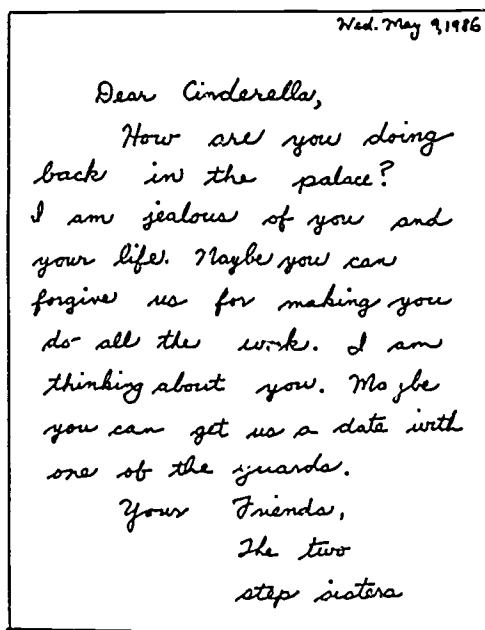 Wed. May 9, 1986
Dear Cinderella,
How are you doing
back in the palace?
I am jealous of you and
your life. Maybe you can
forgive us for making you
do all the work. I am
thinking about you. Maybe
you can get us a date with
one of the guards.
Your Friends,
The two
step sisters